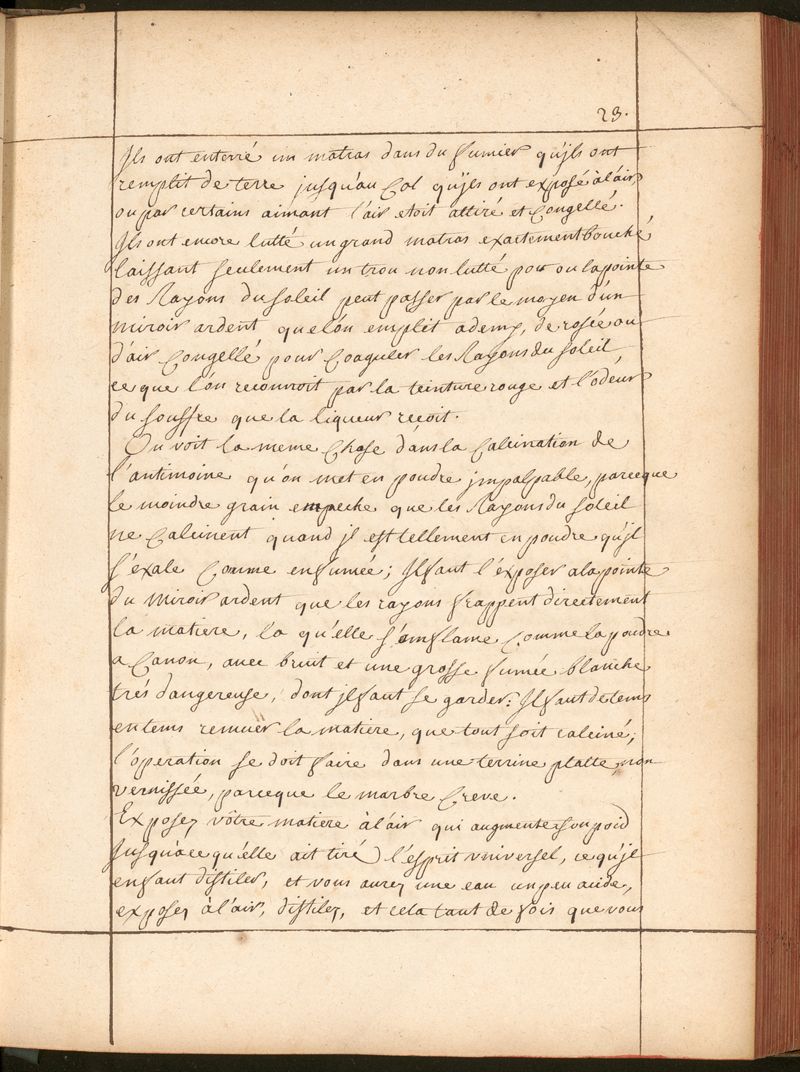 23.
Jls ont enterré un matras dans du fumier qu'jls ont
remplit de terre jusqu'au Col qu'jls ont exposé à l'air,
ou par certains aimant l'air etoit attiré et Congellé.
Jls ont encore lutté un grand matras exactement bouché,
laissant seulement un trou non lutté pour ou la pointe
des Rayons du soleil peut passer par le moyen d'un
miroir ardent que l'on emplit a demy, de rosée ou
d'air Congellé pour Coaguler les Rayons du soleil
ce que l'on reconnoit par la teinture rouge et l'odeur
du souffre que la liqueur reçoit.
On voit la meme Chose dans la Calcination de
l'antimoine qu'on met en poudre jmpalpable, parceque
le moindre grain empeche que les Rayons du soleil
ne Calcinent quand jl est tellement en poudre, qu'jl
s'exale Comme en fumée; Jl faut l'exposer a la pointe
du Miroir ardent que les rayons frappent directement
la matiere, la qu'elle s'emflame Comme la poudre
a Canon, avec bruit et une grosse fumée blanche
trés dangereuse, dont jl faut se garder: Jl faut de tems
en tems remuer la matiere, que tout soit calciné;
l'operation se doit faire dans une terrine platte, non
vernissée, parceque le marbre Creve.
Exposez vôtre matiere à l'air qui augmente son poid
Jusqu'a ce qu'elle ait tiré l'esprit vniversel, ce qu'jl
en faut distiler, et vous aurez une eau un peu acide,
exposez à l'air, distilez, et cela tant de fois que vous